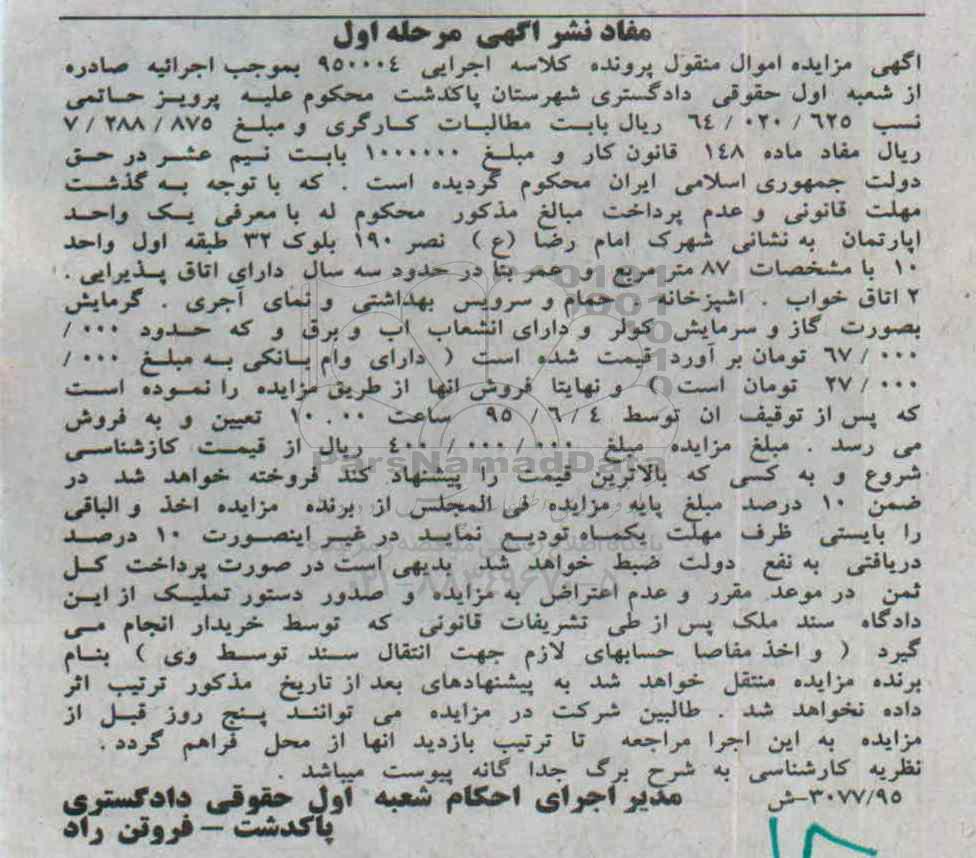 مفاد نشر اگهی مرحله اول
اگهی مزایده اموال منقول پرونده کلاسه اجرایی ۹۵۰۰۰۴ بموجب اجرائیه صادره
از شعبه اول حقوقی دادگستری شهرستان پاکدشت محکوم علیه پرویز حاتمی
نسب ۶۴/۰۲۰/۶۲۵ ریال بابت مطالبات کارگری و مبلغ ۷/۲۸۸/۸۷۵
ریال مفاد ماده ۱۴۸ قانون کار و مبلغ ۱۰۰۰۰۰۰ بابت نیم عشر در حق
دولت جمهوری اسلامی ایران محکوم گردیده است . که با توجه به گذشت
مهلت قانونی و عدم پرداخت مبالغ مذکور محکوم له با معرفی یک واحد
اپارتمان به نشانی شهرک امام رضا (ع) نصر ۱۹۰ بلوک ۳۲ طبقه اول واحد
۱۰ با مشخصات ۸۷ متر مربع و عمر بنا در حدود سه سال دارای اتاق پذیرایی .
۲ اتاق خواب . اشپزخانه . حمام و سرویس بهداشتی و نمای آجری . گرمایش
بصورت گاز و سرمایش کولر و دارای انشعاب اب و برق و که حدود ۰۰۰/
۶۷/۰۰۰ تومان بر آورد قیمت شده است ( دارای وام بانکی به مبلغ ۰۰۰/
۲۷/۰۰۰ تومان است ) و نهایتا فروش انها از طریق مزایده را نموده است
که پس از توقیف ان توسط ۹۵/۶/۴ ساعت ۱۰.۰۰ تعیین و به فروش
می رسد . مبلغ مزایده مبلغ ۴۰۰/۰۰۰/۰۰۰ ریال از قیمت کازشناسی
ParsNamadData
شروع و به کسی که بالاترین قیمت را پیشنهاد کند فروخته خواهد شد در
ضمن ۱۰ درصد مبلغ پایه مزایده فی المجلس از برنده مزایده اخذ و الباقی
را بایستی ظرف مهلت یکماه تودیع نماید در غیر اینصورت ۱۰ درصد
دریافتی به نفع دولت ضبط خواهد شد بدیهی است در صورت پرداخت کل
ثمن در موعد مقرر و عدم اعتراض به مزایده و صدور دستور تملیک از این
دادگاه سند ملک پس از طی تشریفات قانونی که توسط خریدار انجام می
گیرد ( و اخذ مفاصا حسابهای لازم جهت انتقال سند توسط وی ) بنام
برنده مزایده منتقل خواهد شد به پیشنهادهای بعد از تاریخ مذکور ترتیب اثر
داده نخواهد شد . طالبین شرکت در مزایده می توانند پنج روز قبل از
مزایده به این اجرا مراجعه تا ترتیب بازدید انها از محل فراهم گردد .
نظریه کارشناسی به شرح برگ جدا گانه پیوست میباشد .
۳۰۷۷/۹۵-ش مدیر اجرای احکام شعبه اول حقوقی دادگستری
پاکدشت – فروتن راد